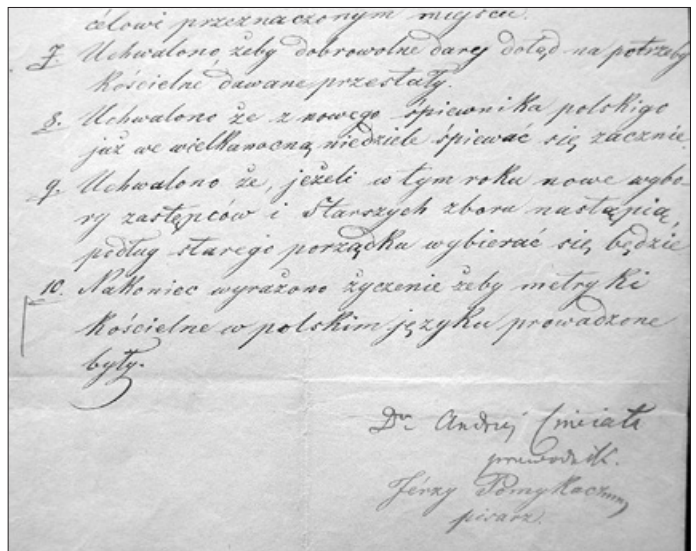 celowi przeznaczonym miejscu.
7. Uchwalono, żeby dobrowolne dary dotąd na potrzeby
kościelne dawane przestały.
8. Uchwalono że z nowego śpiewnika polskigo
już we wielkanocną niedziele śpiewać się zacznie
9. Uchwalono że, jeżeli w tym roku nowe wybo-
ry zastępców i Starszych zboru nastąpią,
podług starego porządku wybierać się będzie
10. Nakoniec wyrażono życzenie żeby metryki
kościelne w polskim języku prowadzone
były.
Dr Andrzej Cinciała
przewodnik.
Jerzy
pisarz.